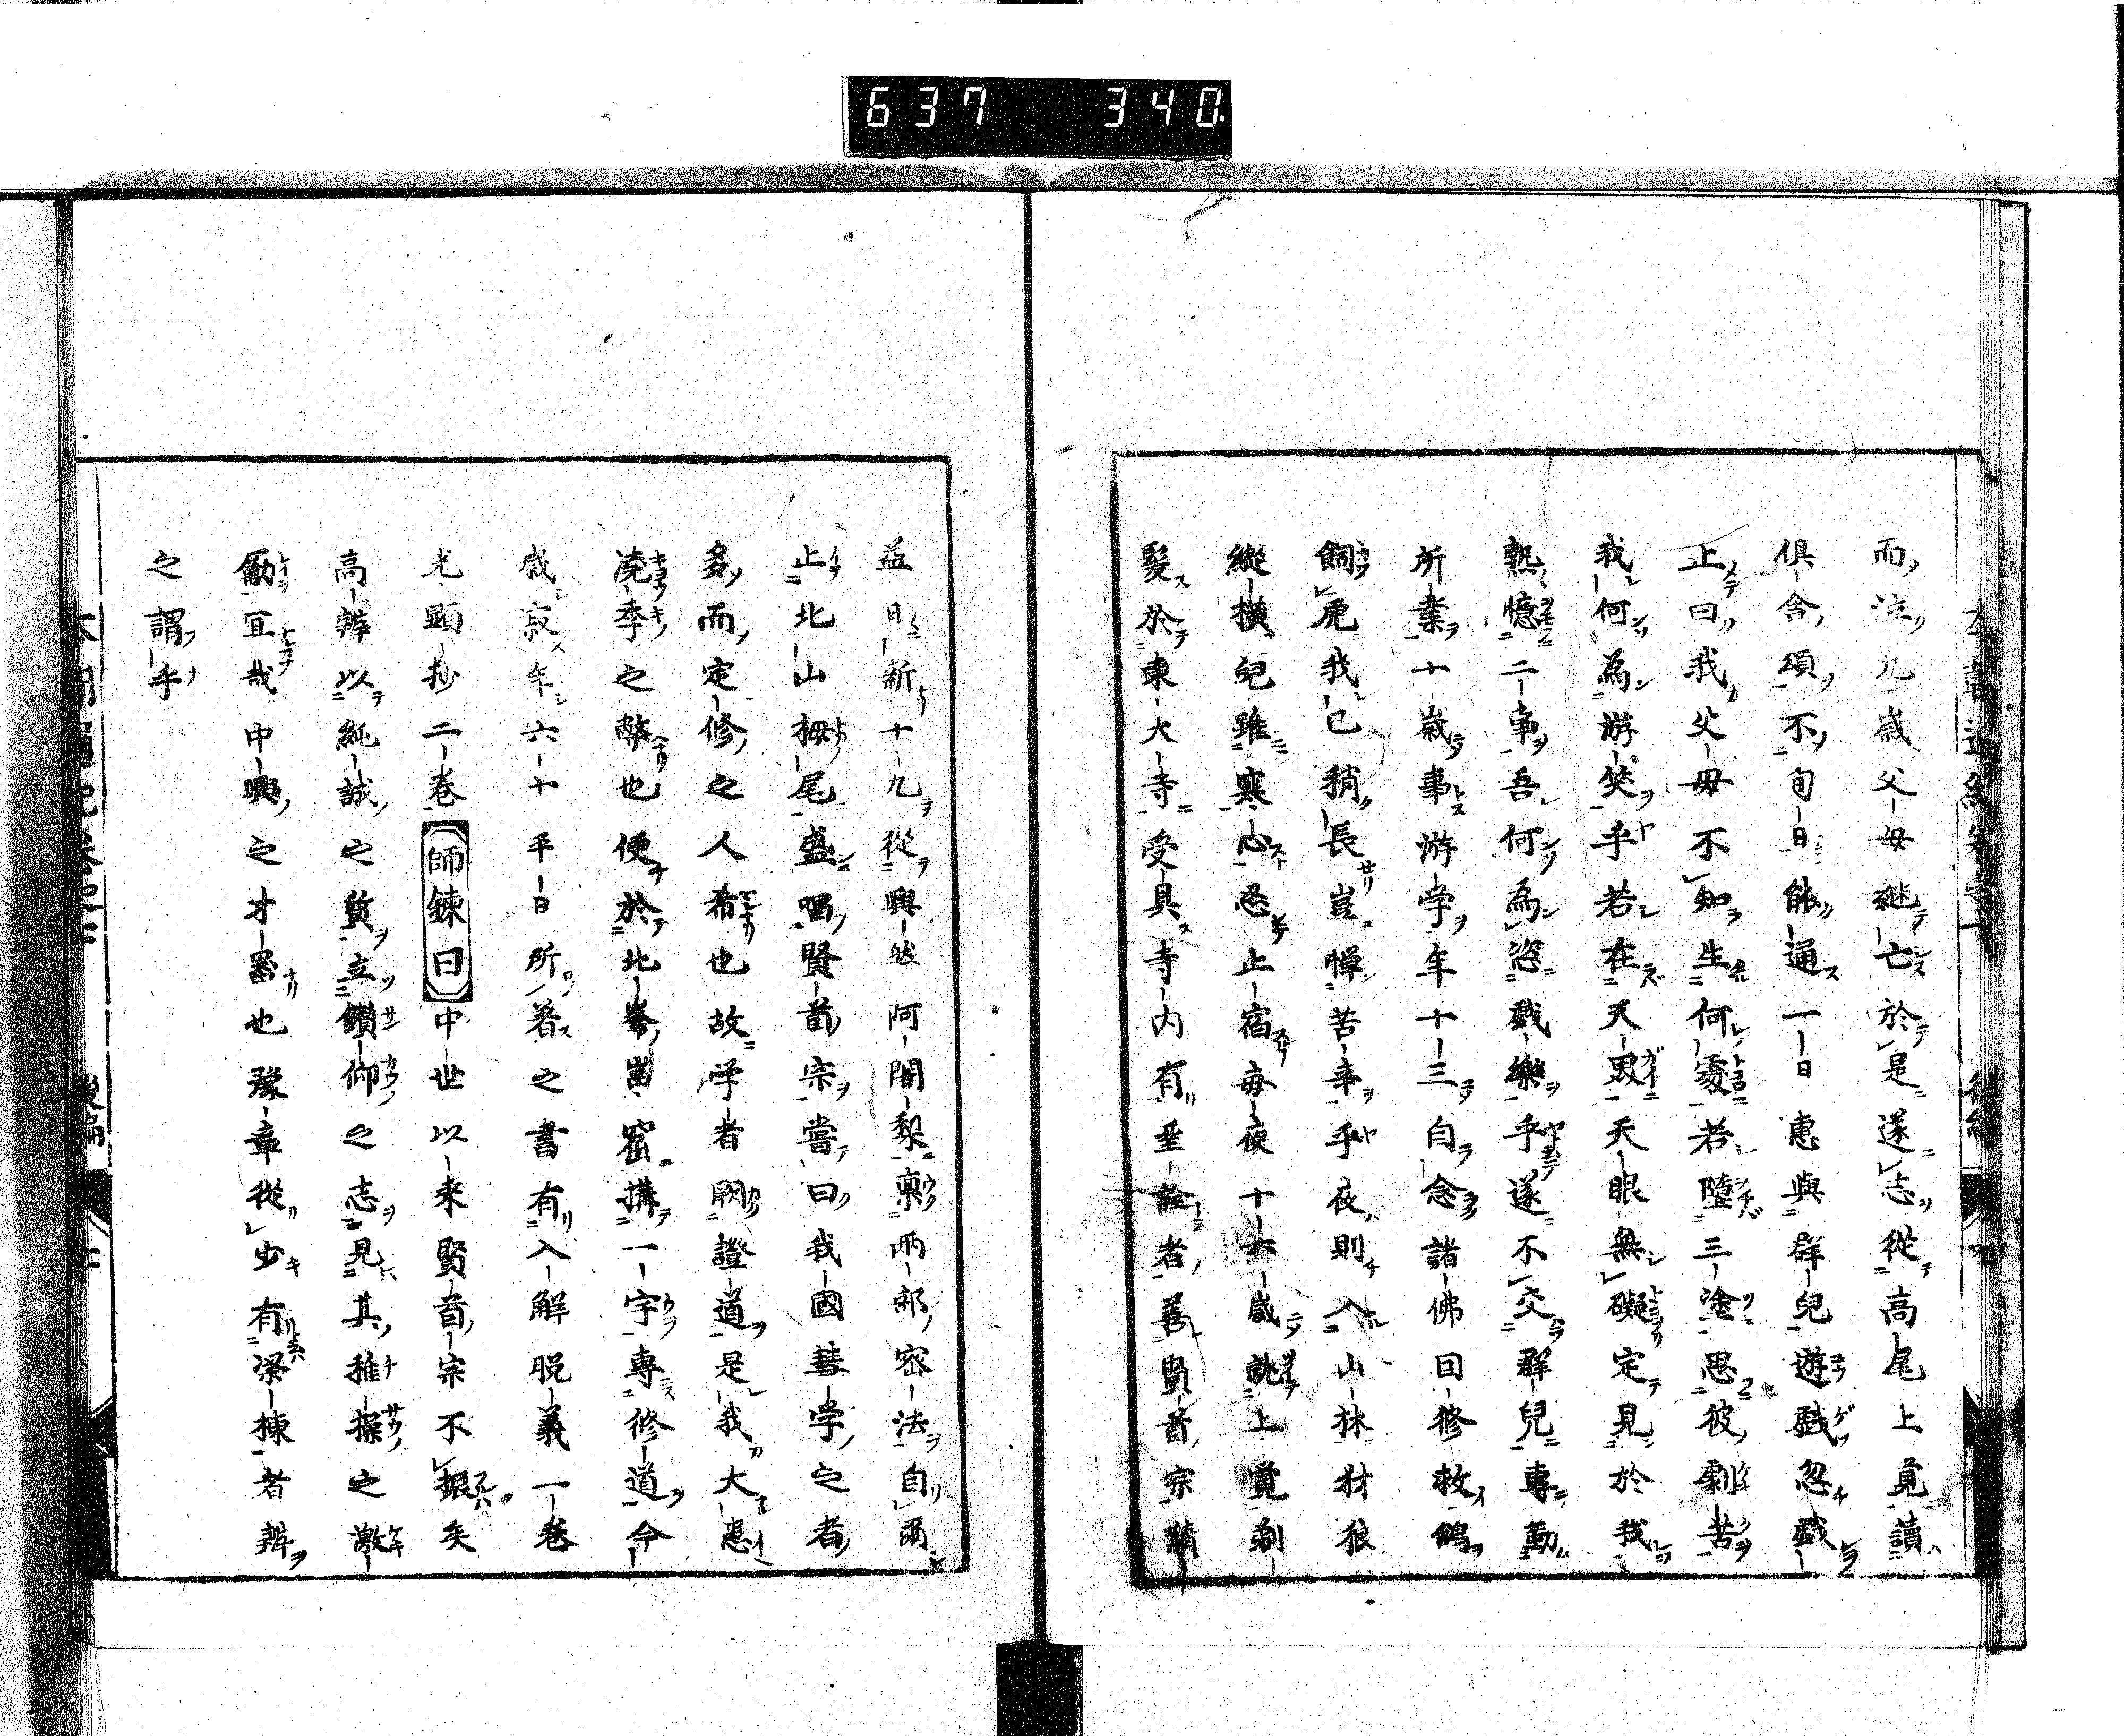 637 340
而泣九歳父母継亡於是遂志從高尾上覚讀
倶舎頌不旬日能通一日慮與群兒遊戯忽戯
止曰我父母不知生何處若墮三塗思彼劇苦
我何為游笑乎若在天界天眼無礙定見於我
熟憶二事吾何為恣戯樂乎遂不交群兒專勤
所業十歳事游学年十三自念諸佛因修救鴿
飼虎我已稍長豈憚苦辛乎夜則入山林豺狼
縱横兒雖寒心忍止宿毎夜十六歳就上覚剃
髮於東大寺受具寺内有聖詮者善賢首宗請
益日新十九從興然阿闍梨稟両部密法自爾
止北山栂尾盛唱賢首宗嘗曰我國慧学之者
多而定修之人希也故学者闕證道是我大患
澆季之弊也便於北峯嵓窟搆一宇專修道今
歳寂年六十平日所著之書有入解脱義一巻
光顕抄二巻師錬曰中世以来賢首宗不振矣
高辨以純誠之質立鑽仰之志見其稚操之激
勵宜哉中興之才器也豫章從少有梁棟者辨
之謂乎